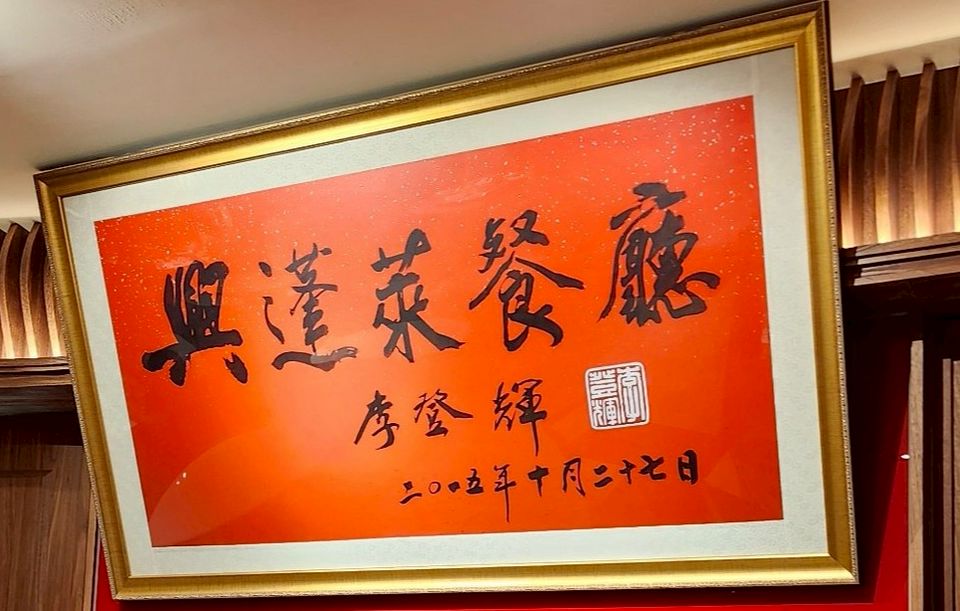 興蓬萊餐廳
李登輝
李登輝
二〇〇五年十月二十七日